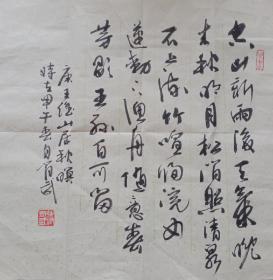 空山新雨後天氣晚
来秋明月松间照清泉
石上流竹喧归浣女
蓮動下漁舟随意春
芳歇王孙自可留
唐王维山居秋暝
時在甲午春月